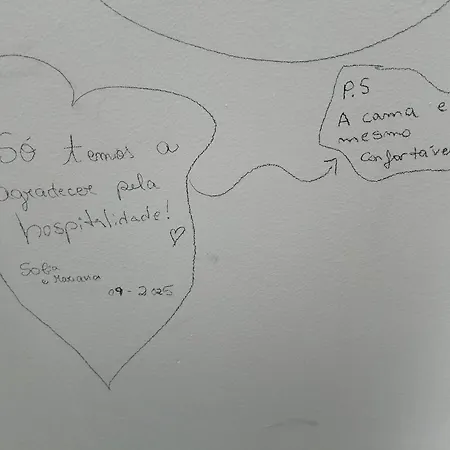 Só temos a
agradecer pela
hospitalidade!
Sofia
e Mariana
09-2025
P.S
A cama e
mesmo
confortáve